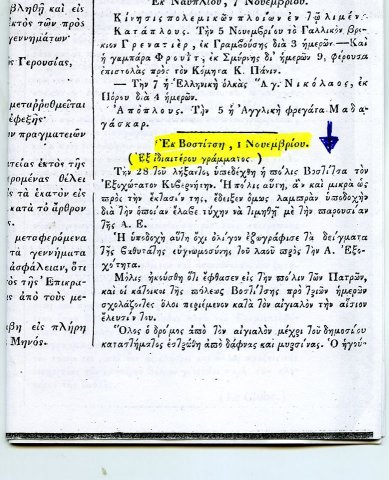 βληθῇ καὶ εἰς
ἐκτὸς τῶν πρὸς
γεννημάτων
ς Γερουσίας,
μεταρρυθμεῖται
ἐφεξῆς
ων πραγματειῶν
ατείας ἐκτὸς τῆς
ερομένας θέλει
ς τὰ ἑκατὸν εἰς
κατὰ τὸ ἄρθρον
μεταφερόμενα
τὰ γεννήματα
ἀσφάλειαν, ὅτι
τὸς τῆς Ἐπικρα-
ς ἀπὸ τοὺς με-
άβη εἰς πλήρη
Μηνός.
Ἐκ Ναυπλίου, 7 Νοεμβρίου.
Κίνησις πολεμικῶν πλοίων ἐν τῷ λιμένι.
Κατάπλους. Τὴν 5 Νοεμβρίου τὸ Γαλλικὸν βρί-
κιον Γρενατιὲρ, ἐκ Γραμβούσης διὰ 3 ἡμερῶν.—Καὶ
ἡ γαμπάρα Φρουὶτ, ἐκ Σμύρνης δι' ἡμερῶν 9, φέρουσα
ἐπιστολὰς πρὸς τὸν Κόμητα Κ. Πάνιν.
— Τὴν 7 ἡ Ἑλληνικὴ ὁλκὰς Ἁγ. Νικόλαος, ἐκ
Πόρου διὰ 4 ἡμερῶν.
Ἀπόπλους. Τὴν 5 ἡ Ἀγγλικὴ φρεγάτα Μαδα-
γάσκαρ.
Ἐκ Βοστίτσης, 1 Νοεμβρίου.
(Ἐξ ἰδιαιτέρου γράμματος.)
Τὴν 28 τοῦ λήξαντος ὑπεδέχθη ἡ πόλις Βοστίτσα τὸν
Ἐξοχώτατον Κυβερνήτην. Ἡ πόλις αὕτη, ἂν καὶ μικρὰ ὡς
πρὸς τὴν ἔκτασίν της, ἔδειξεν ὅμως λαμπρὰν ὑποδοχὴν
διὰ τὴν ὁποίαν ἔλαβε τύχην νὰ τιμηθῇ μὲ τὴν παρουσίαν
τῆς Α. Ε.
Ἡ ὑποδοχὴ αὕτη ὄχι ὀλίγον ἐζωγράφισε τὰ δείγματα
τῆς βαθυτάτης εὐγνωμοσύνης τοῦ λαοῦ πρὸς τὴν Α. Ἐξο-
χότητα.
Μόλις ἠκούσθη ὅτι ἔφθασεν εἰς τὴν πόλιν τῶν Πατρῶν,
καὶ οἱ κάτοικοι τῆς πόλεως Βοστίτσης πρὸ τριῶν ἡμερῶν
σχολάζοντες ὅλοι περιέμενον κατὰ τὸν αἰγιαλὸν τὴν αἴσιον
ἔλευσίν του.
Ὅλος ὁ δρόμος ἀπὸ τὸν αἰγιαλὸν μέχρι τοῦ δημοσίου
καταστήματος ἐστρώθη ἀπὸ δάφνας καὶ μυρσίνας. Ὁ ἡγού-